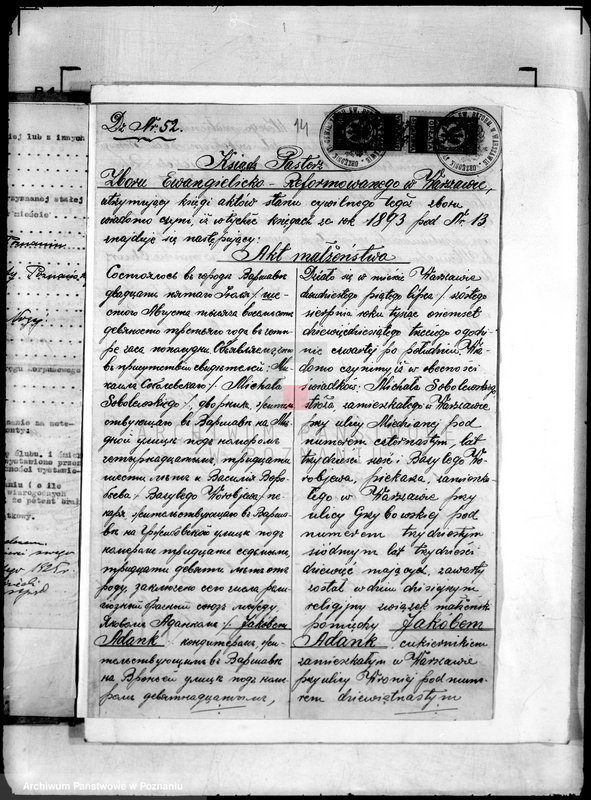 Dz Nr. 52.
14
Ksiądz Pastor
Zboru Ewangielicko-Reformowanego w Warszawie,
utrzymujący księgi aktów stanu cywilnego tegoż zboru
wiadomo czyni, iż w tychże księgach za rok 1893 pod Nr. 13
znajduje się następujący:
Akt małżeństwa
Состоялось въ городѣ Варшавѣ
двадцать пятаго Іюля / шес-
того Августа тысяча восемьсотъ
девяносто третьяго года въ четы-
ре часа пополудни. Объявляемъ, что
въ присутствіи свидѣтелей: Ми-
хаила Соболевскаго / Michała
Sobolewskiego /, дворника, житель-
ствующаго въ Варшавѣ на Мѣд-
ной улицѣ подъ номеромъ
четырнадцатымъ, тридцати
шести лѣтъ и Василія Воро-
бьева / Bazylego Worobjewa / пе-
каря, жительствующаго въ Варша-
вѣ на Гржибовской улицѣ подъ
номеромъ тридцать седьмымъ,
тридцати девяти лѣтъ отъ
роду, заключенъ сего числа рели-
гіозный брачный союзъ между
Яковомъ Аданкомъ / Jakóbem
Adank кондитеромъ, жи-
тельствующимъ въ Варшавѣ
на Вроньей улицѣ подъ номе-
ромъ девятнадцатымъ,
Działo się w mieście Warszawie
dwudziestego piątego lipca / szóstego
sierpnia roku tysiąc ośmset
dziewięćdziesiątego trzeciego o godzi-
nie czwartej po południu. Wia-
domo czynimy, iż w obecności
świadków: Michała Sobolewskiego
stróża, zamieszkałego w Warszawie
przy ulicy Miedzianej pod
numerem czternastym, lat
trzydzieści sześć i Bazylego Wo-
robjewa, piekarza, zamieszka-
łego w Warszawie przy
ulicy Grzybowskiej pod
numerem trzydziestym
siódmym lat trzydzieści
dziewięć mających, zawarty
został w dniu dzisiejszym
religijny związek małżeński
pomiędzy Jakóbem
Adank, cukiernikiem
zamieszkałym w Warszawie
przy ulicy Wroniej pod nume-
rem dziewiętnastym
Archiwum Państwowe w Poznaniu